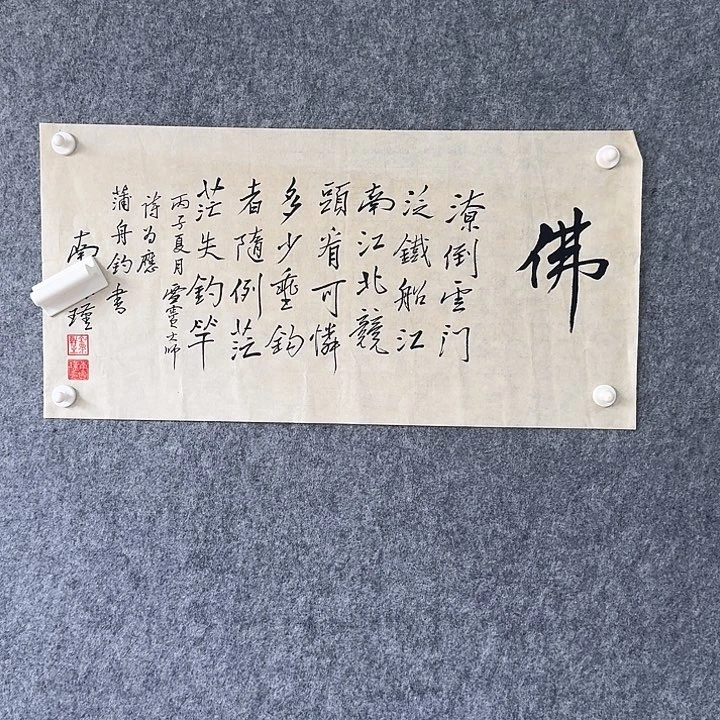 佛
潦倒雲門
泛鐵船江
南江北競
頭看可憐
多少垂鈎
者隨例茫
茫失釣竿
丙子夏月 雪竇大师
诗为應
蒲舟钓書
南 瑾